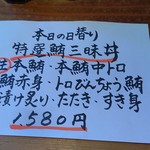 本日の日替り
特選鮪三昧丼
生本鮪・本鮪中トロ
鮪赤身・トロびんちょう鮪
漬け炙り・たたき・すき身
1,580円